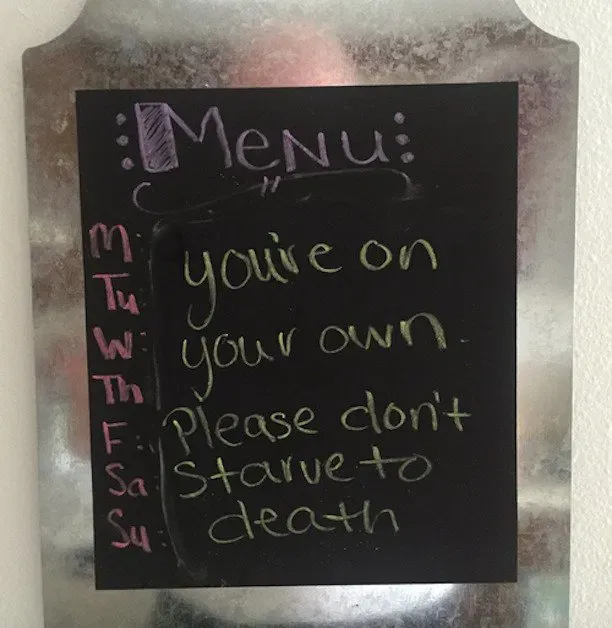 Menu
M: you're on
Tu
W: your own.
Th
F: Please don't
Sa: starve to
Su: death